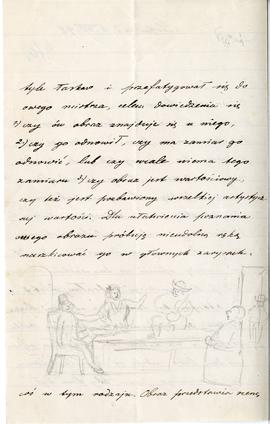 tyle łaskaw i przefatygował się do
owego mistrza, celem dowiedzenia się
1) czy ów obraz znajduje się u niego,
2) czy go odnowił, czy ma zamiar go
odnowić, lub czy wcale niema tego
zamiaru 3) czy obraz jest wartościowy,
czy też jest pozbawiony wszelkiej artystycz
nej wartości. Dla ułatwienia poznania
owego obrazu próbuję nieudolną ręką
naszkicować go w głównych zarysach.
coś w tym rodzaju. Obraz przedstawia scenę